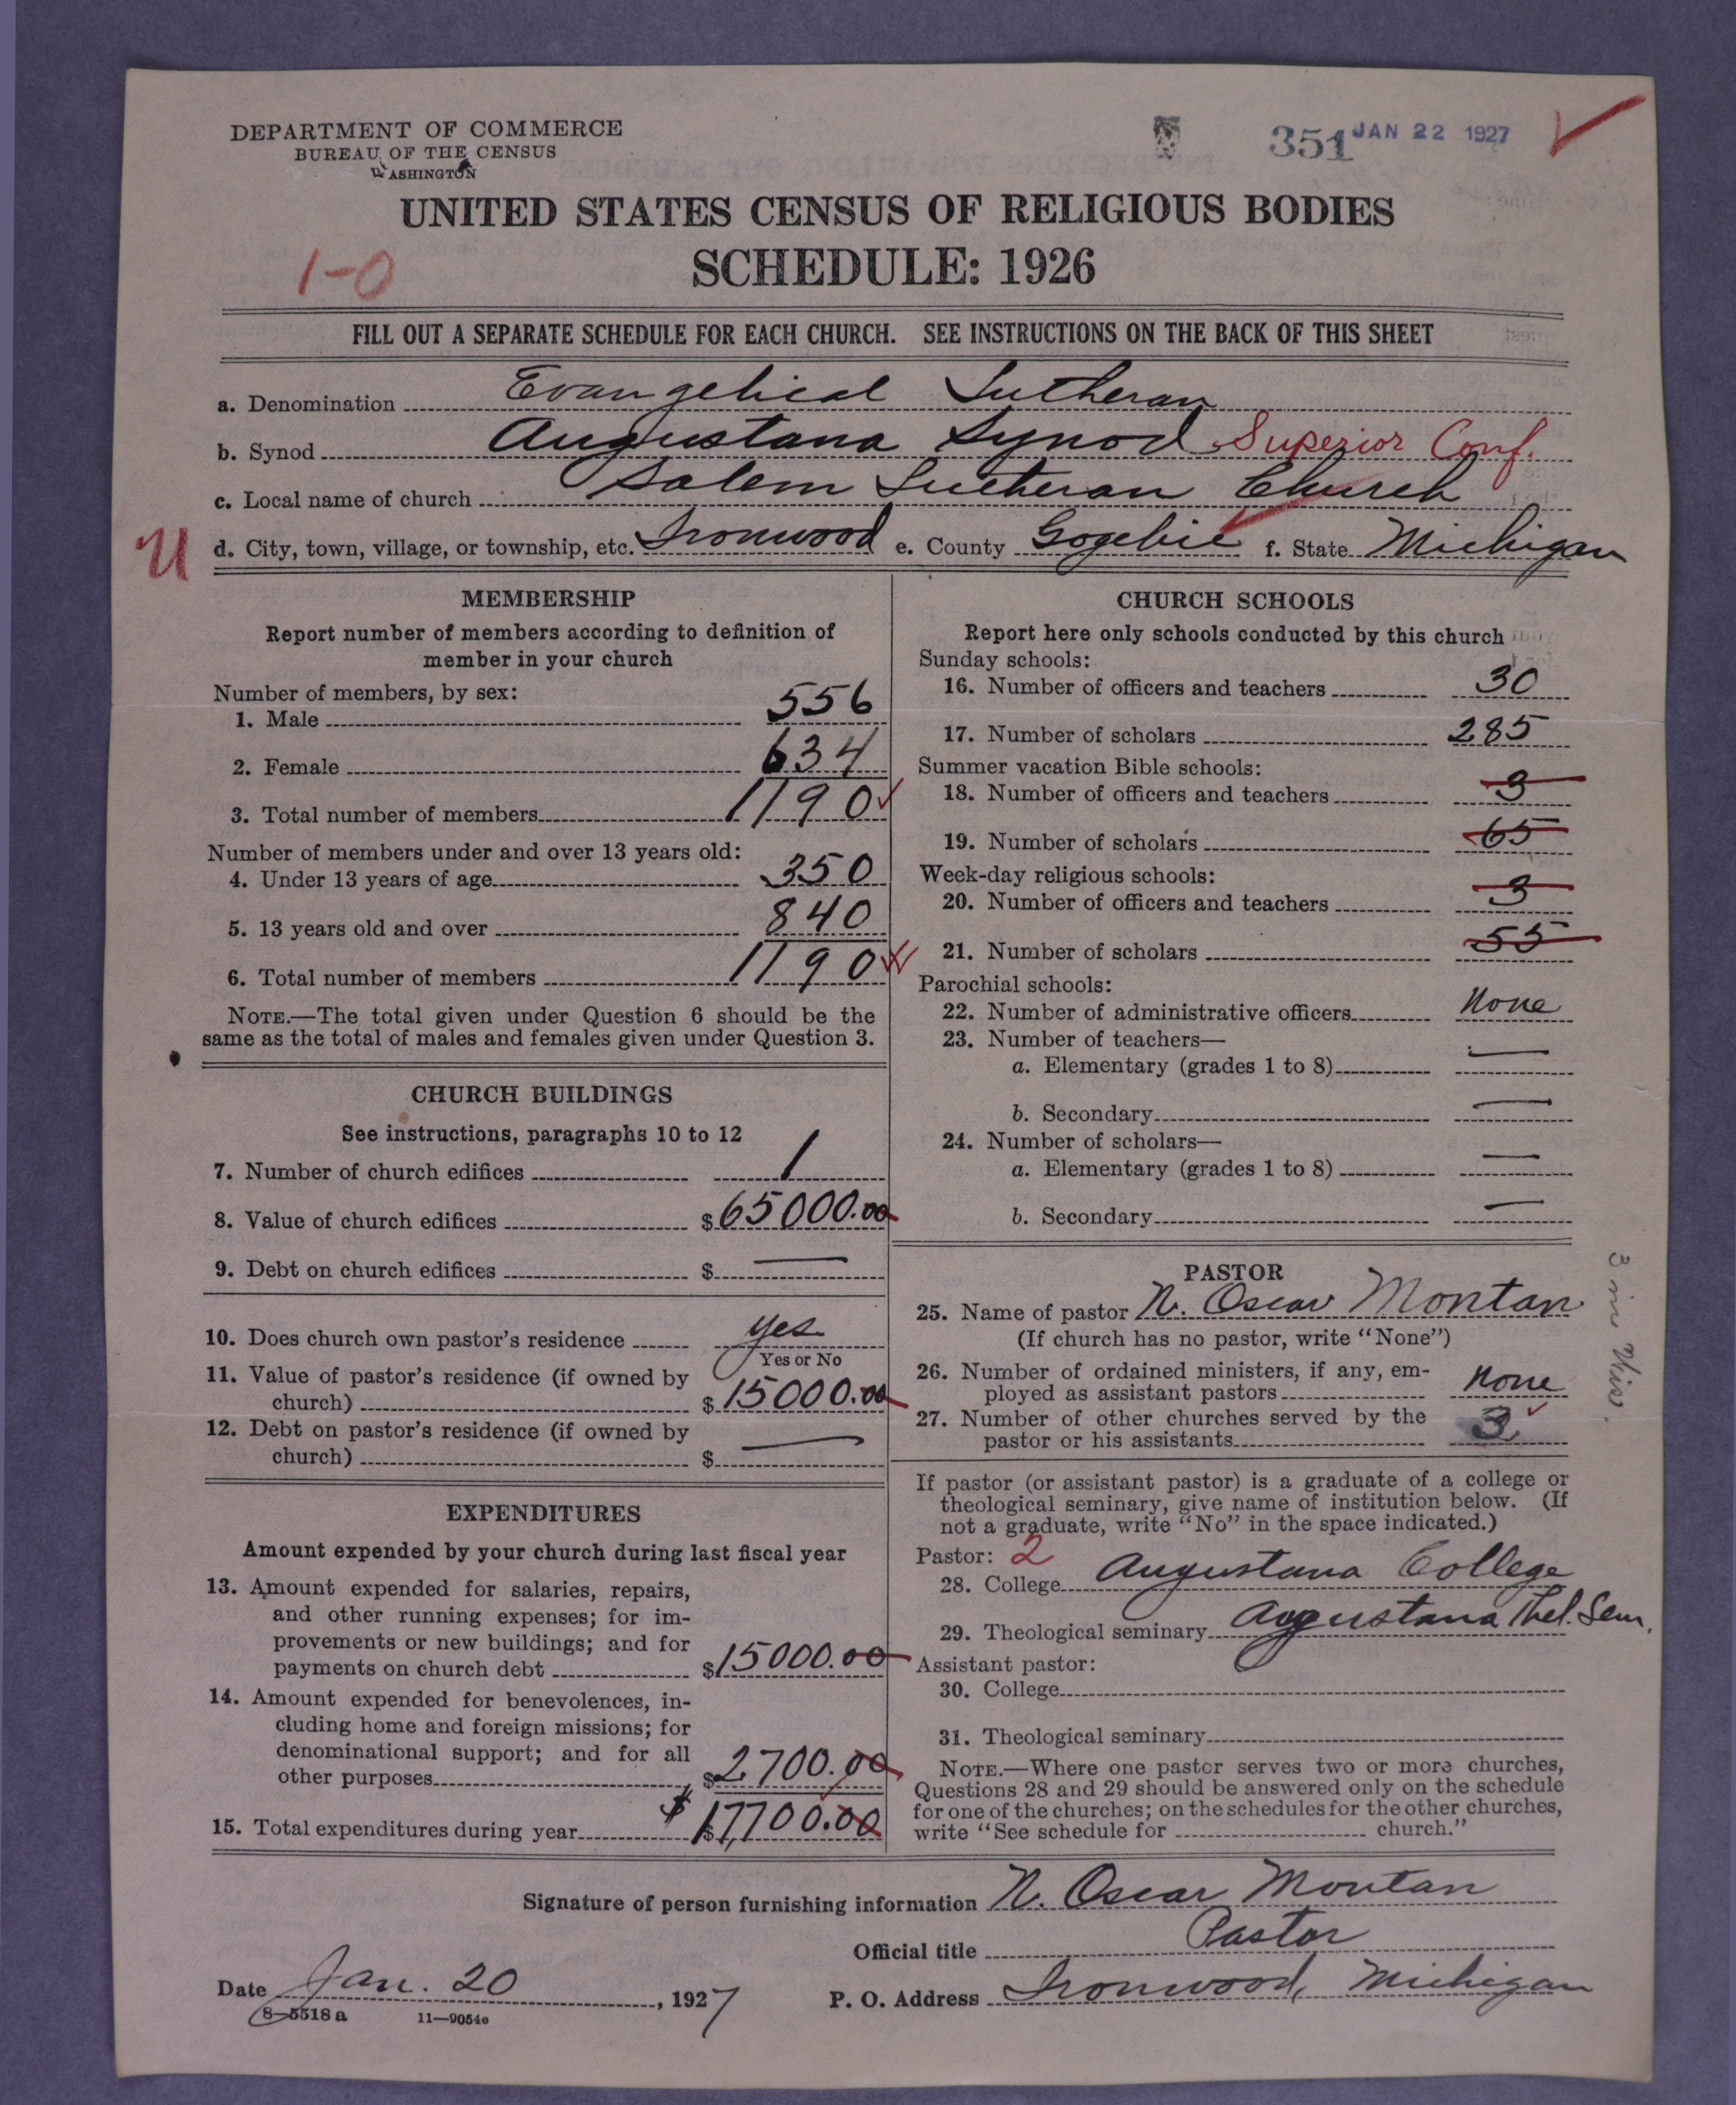 DEPARTMENT OF COMMERCE
BUREAU OF THE CENSUS
WASHINGTON
351 JAN 22 1927
UNITED STATES CENSUS OF RELIGIOUS BODIES
SCHEDULE: 1926
1-0
FILL OUT A SEPARATE SCHEDULE FOR EACH CHURCH. SEE INSTRUCTIONS ON THE BACK OF THIS SHEET
a. Denomination Evangelical Lutheran
b. Synod Augustana Synod Superior Conf.
c. Local name of church Salem Lutheran Church
U d. City, town, village, or township, etc. Ironwood e. County Gogebic f. State Michigan
MEMBERSHIP
Report number of members according to definition of
member in your church
Number of members, by sex:
1. Male 556
2. Female 634
3. Total number of members 1190
Number of members under and over 13 years old:
4. Under 13 years of age 350
5. 13 years old and over 840
6. Total number of members 1190
NOTE.—The total given under Question 6 should be the
same as the total of males and females given under Question 3.
CHURCH BUILDINGS
See instructions, paragraphs 10 to 12
7. Number of church edifices 1
8. Value of church edifices $65000.00
9. Debt on church edifices $ —
10. Does church own pastor's residence yes
Yes or No
11. Value of pastor's residence (if owned by
church) $15000.00
12. Debt on pastor's residence (if owned by
church) $ —
EXPENDITURES
Amount expended by your church during last fiscal year
13. Amount expended for salaries, repairs,
and other running expenses; for im-
provements or new buildings; and for
payments on church debt $15000.00
14. Amount expended for benevolences, in-
cluding home and foreign missions; for
denominational support; and for all
other purposes $2700.00
15. Total expenditures during year $ $17,700.00
CHURCH SCHOOLS
Report here only schools conducted by this church
Sunday schools:
16. Number of officers and teachers 30
17. Number of scholars 285
Summer vacation Bible schools:
18. Number of officers and teachers 3
19. Number of scholars 65
Week-day religious schools:
20. Number of officers and teachers 3
21. Number of scholars 55
Parochial schools:
22. Number of administrative officers None
23. Number of teachers—
a. Elementary (grades 1 to 8) —
b. Secondary —
24. Number of scholars—
a. Elementary (grades 1 to 8) —
b. Secondary —
PASTOR
25. Name of pastor N. Oscar Montan
(If church has no pastor, write "None")
26. Number of ordained ministers, if any, em-
ployed as assistant pastors None
27. Number of other churches served by the
pastor or his assistants 3
3 in Wisc.
If pastor (or assistant pastor) is a graduate of a college or
theological seminary, give name of institution below. (If
not a graduate, write "No" in the space indicated.)
Pastor: 2
28. College Augustana College
29. Theological seminary Augustana Thel. Sem.
Assistant pastor:
30. College
31. Theological seminary
NOTE.—Where one pastor serves two or more churches,
Questions 28 and 29 should be answered only on the schedule
for one of the churches; on the schedules for the other churches,
write "See schedule for church."
Signature of person furnishing information N. Oscar Montan
Official title Pastor
Date Jan. 20, 1927 P. O. Address Ironwood, Michigan
8—5518 a 11—9054e